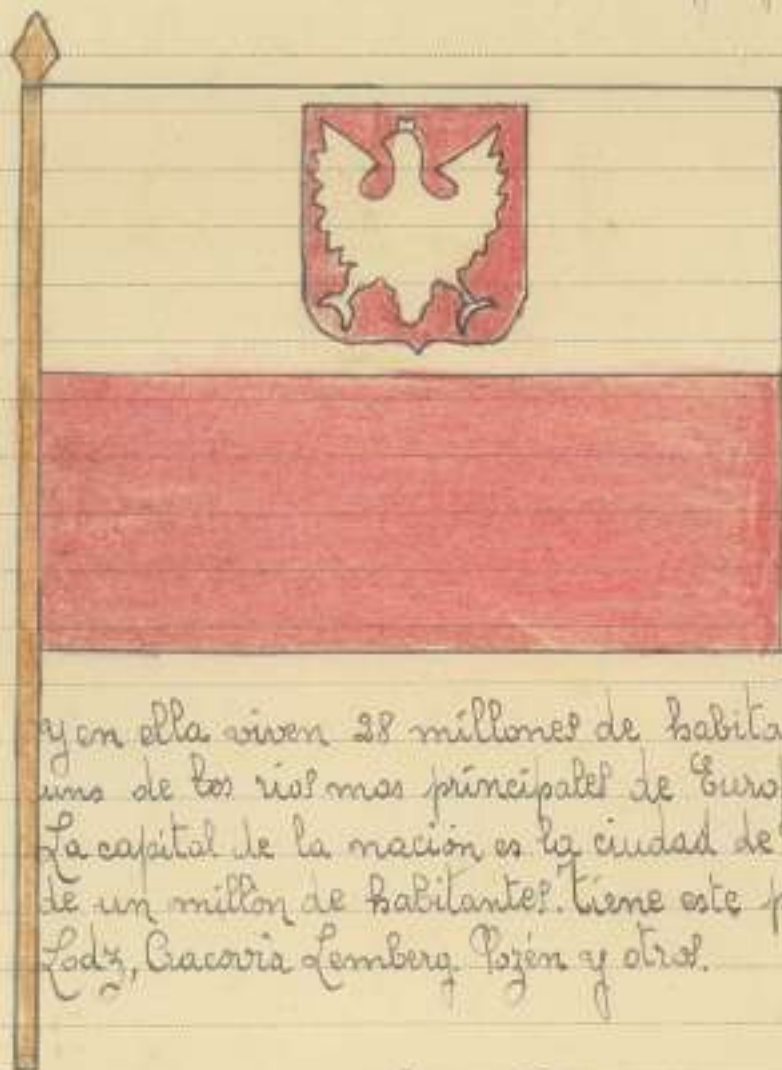 y en ella viven 28 millones de habita
uno de los rios mas principales de Euro
La capital de la nación es la ciudad de
de un millón de habitantes. Tiene este p
Lodz, Cracovia Lemberg Pozén y otros.